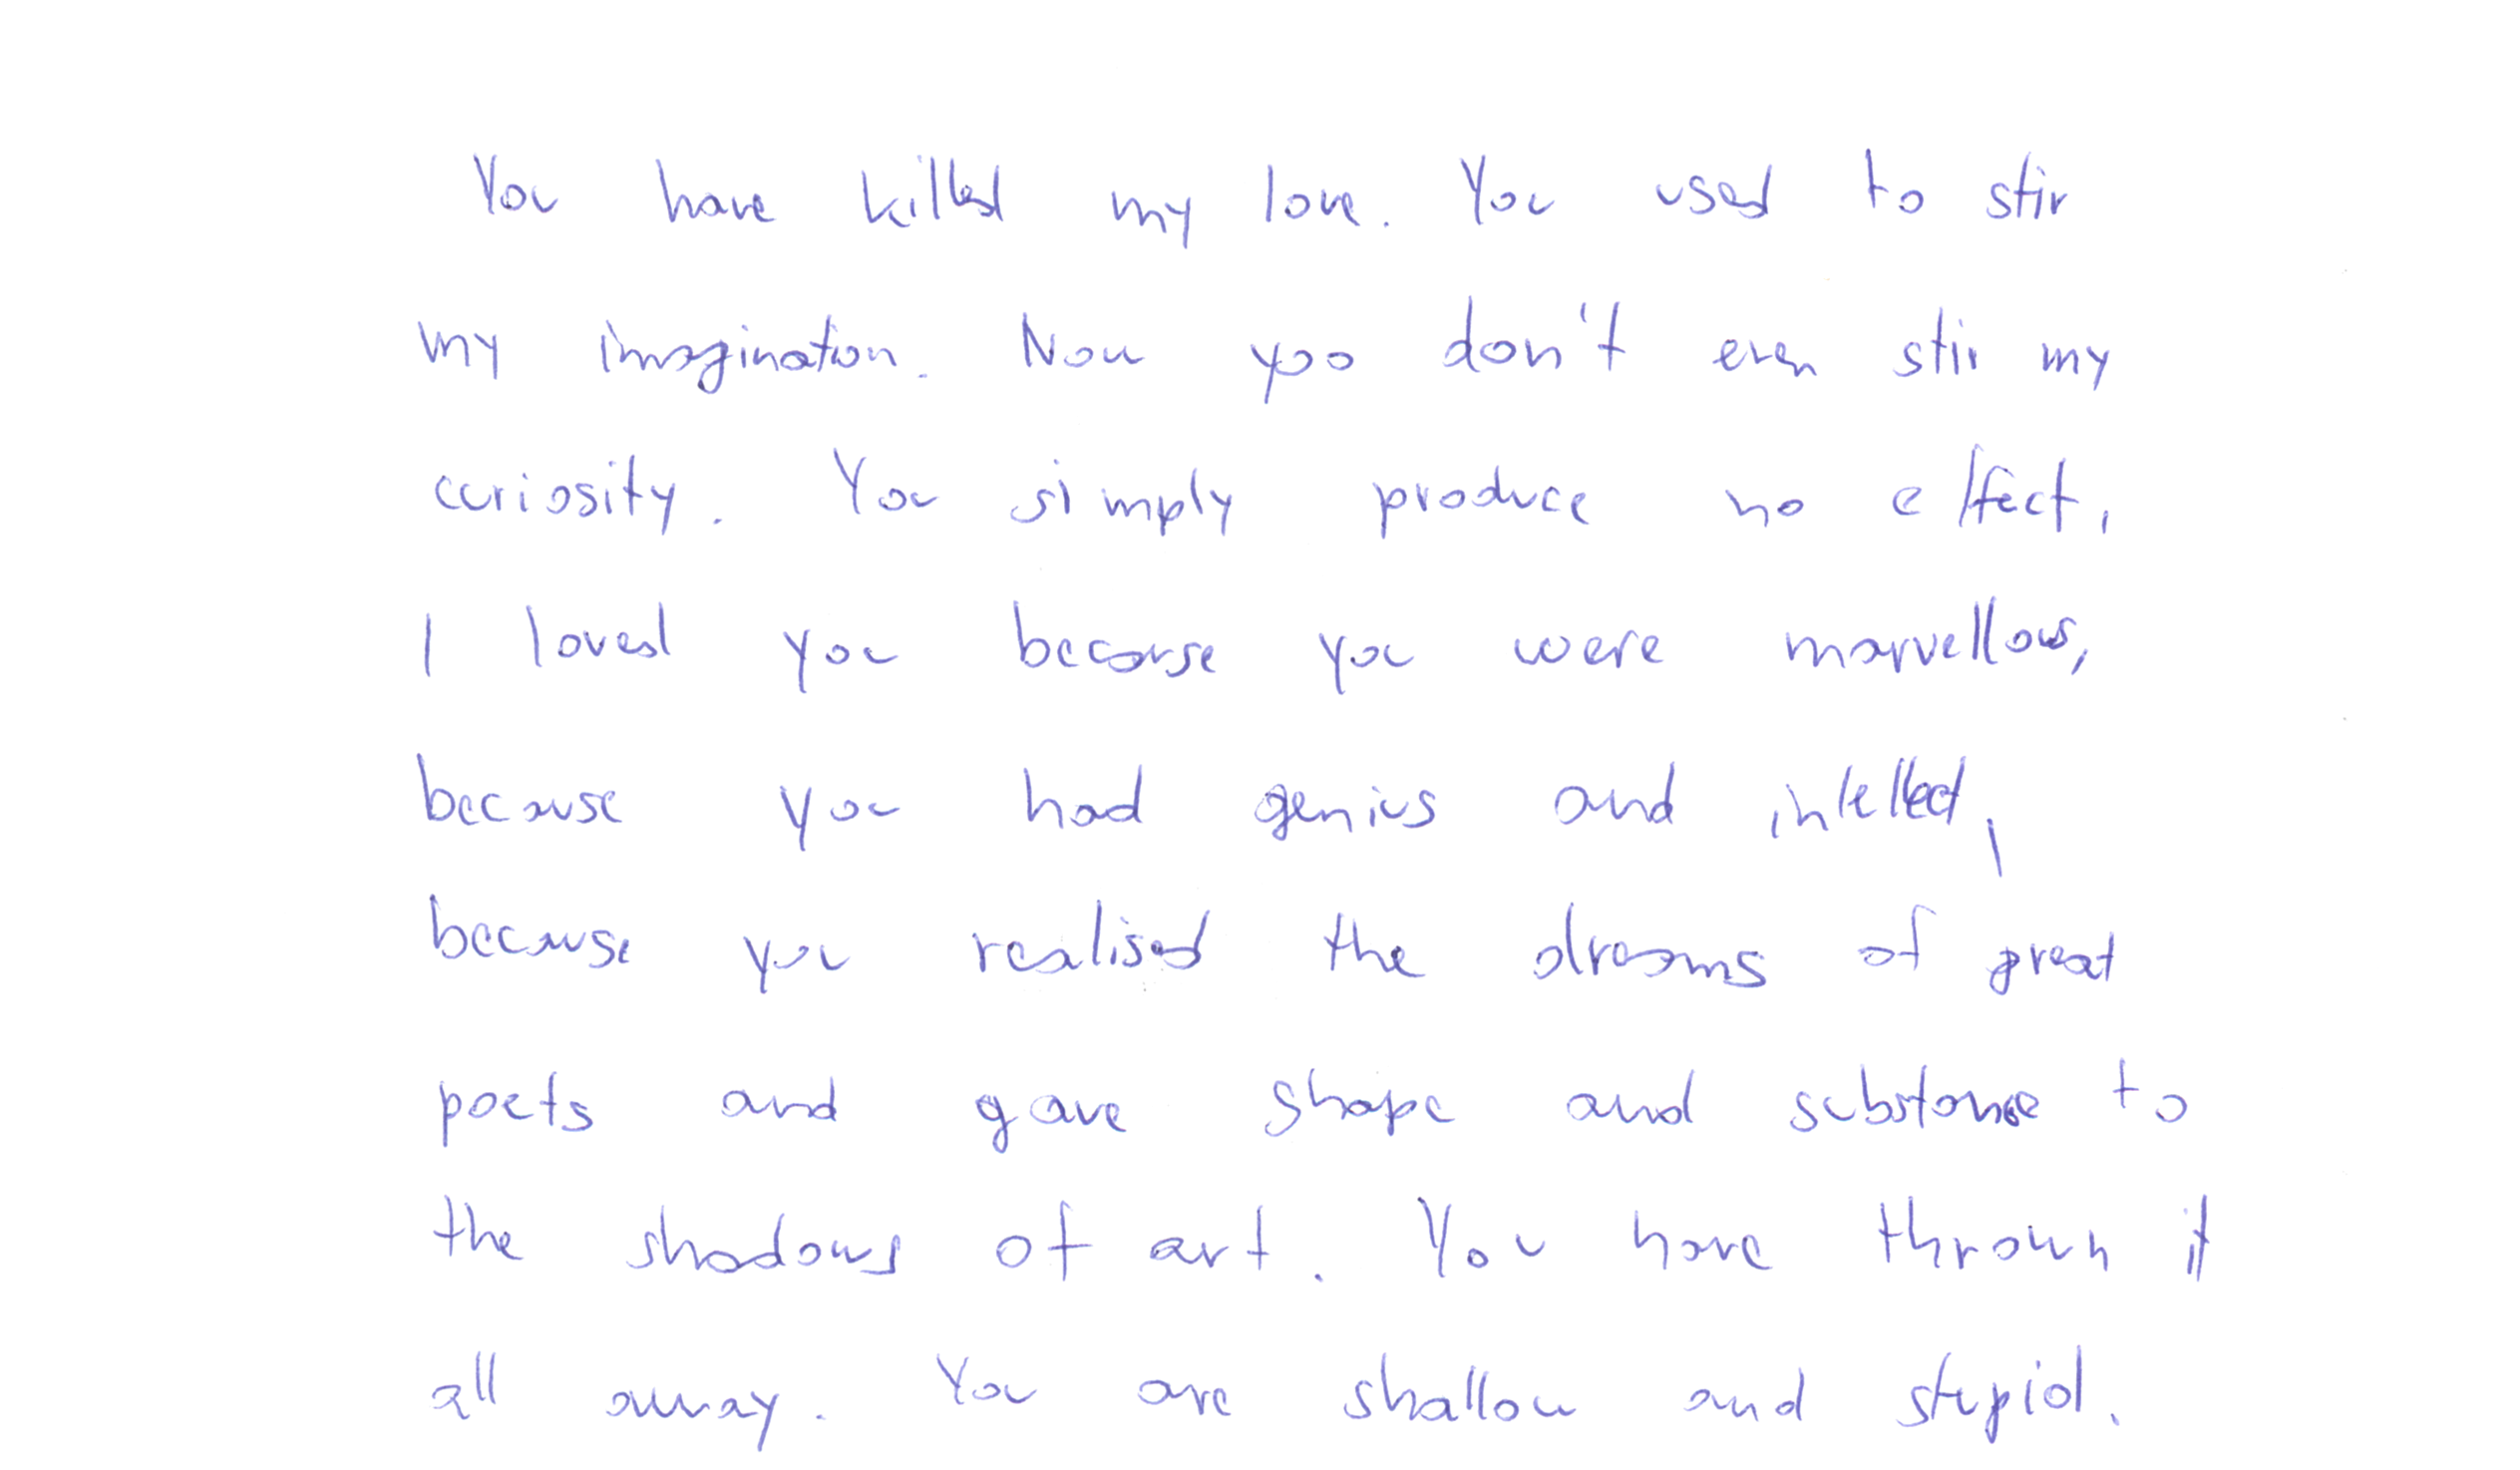 You have killed my love. You used to stir
my imagination. Now you don't even stir my
curiosity. You simply produce no effect.
I loved you because you were marvellous,
because you had genius and intellect,
because you realised the dreams of great
poets and gave shape and substance to
the shadows of art. You have thrown it
all away. You are shallow and stupid.